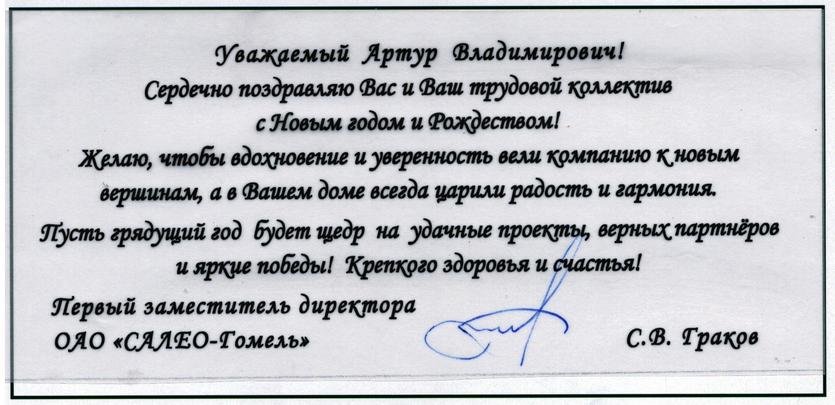 Уважаемый Артур Владимирович!
Сердечно поздравляю Вас и Ваш трудовой коллектив
с Новым годом и Рождеством!
Желаю, чтобы вдохновение и уверенность вели компанию к новым
вершинам, а в Вашем доме всегда царили радость и гармония.
Пусть грядущий год будет щедр на удачные проекты, верных партнёров
и яркие победы! Крепкого здоровья и счастья!
Первый заместитель директора
ОАО «САЛЕО-Гомель»
С.В. Граков